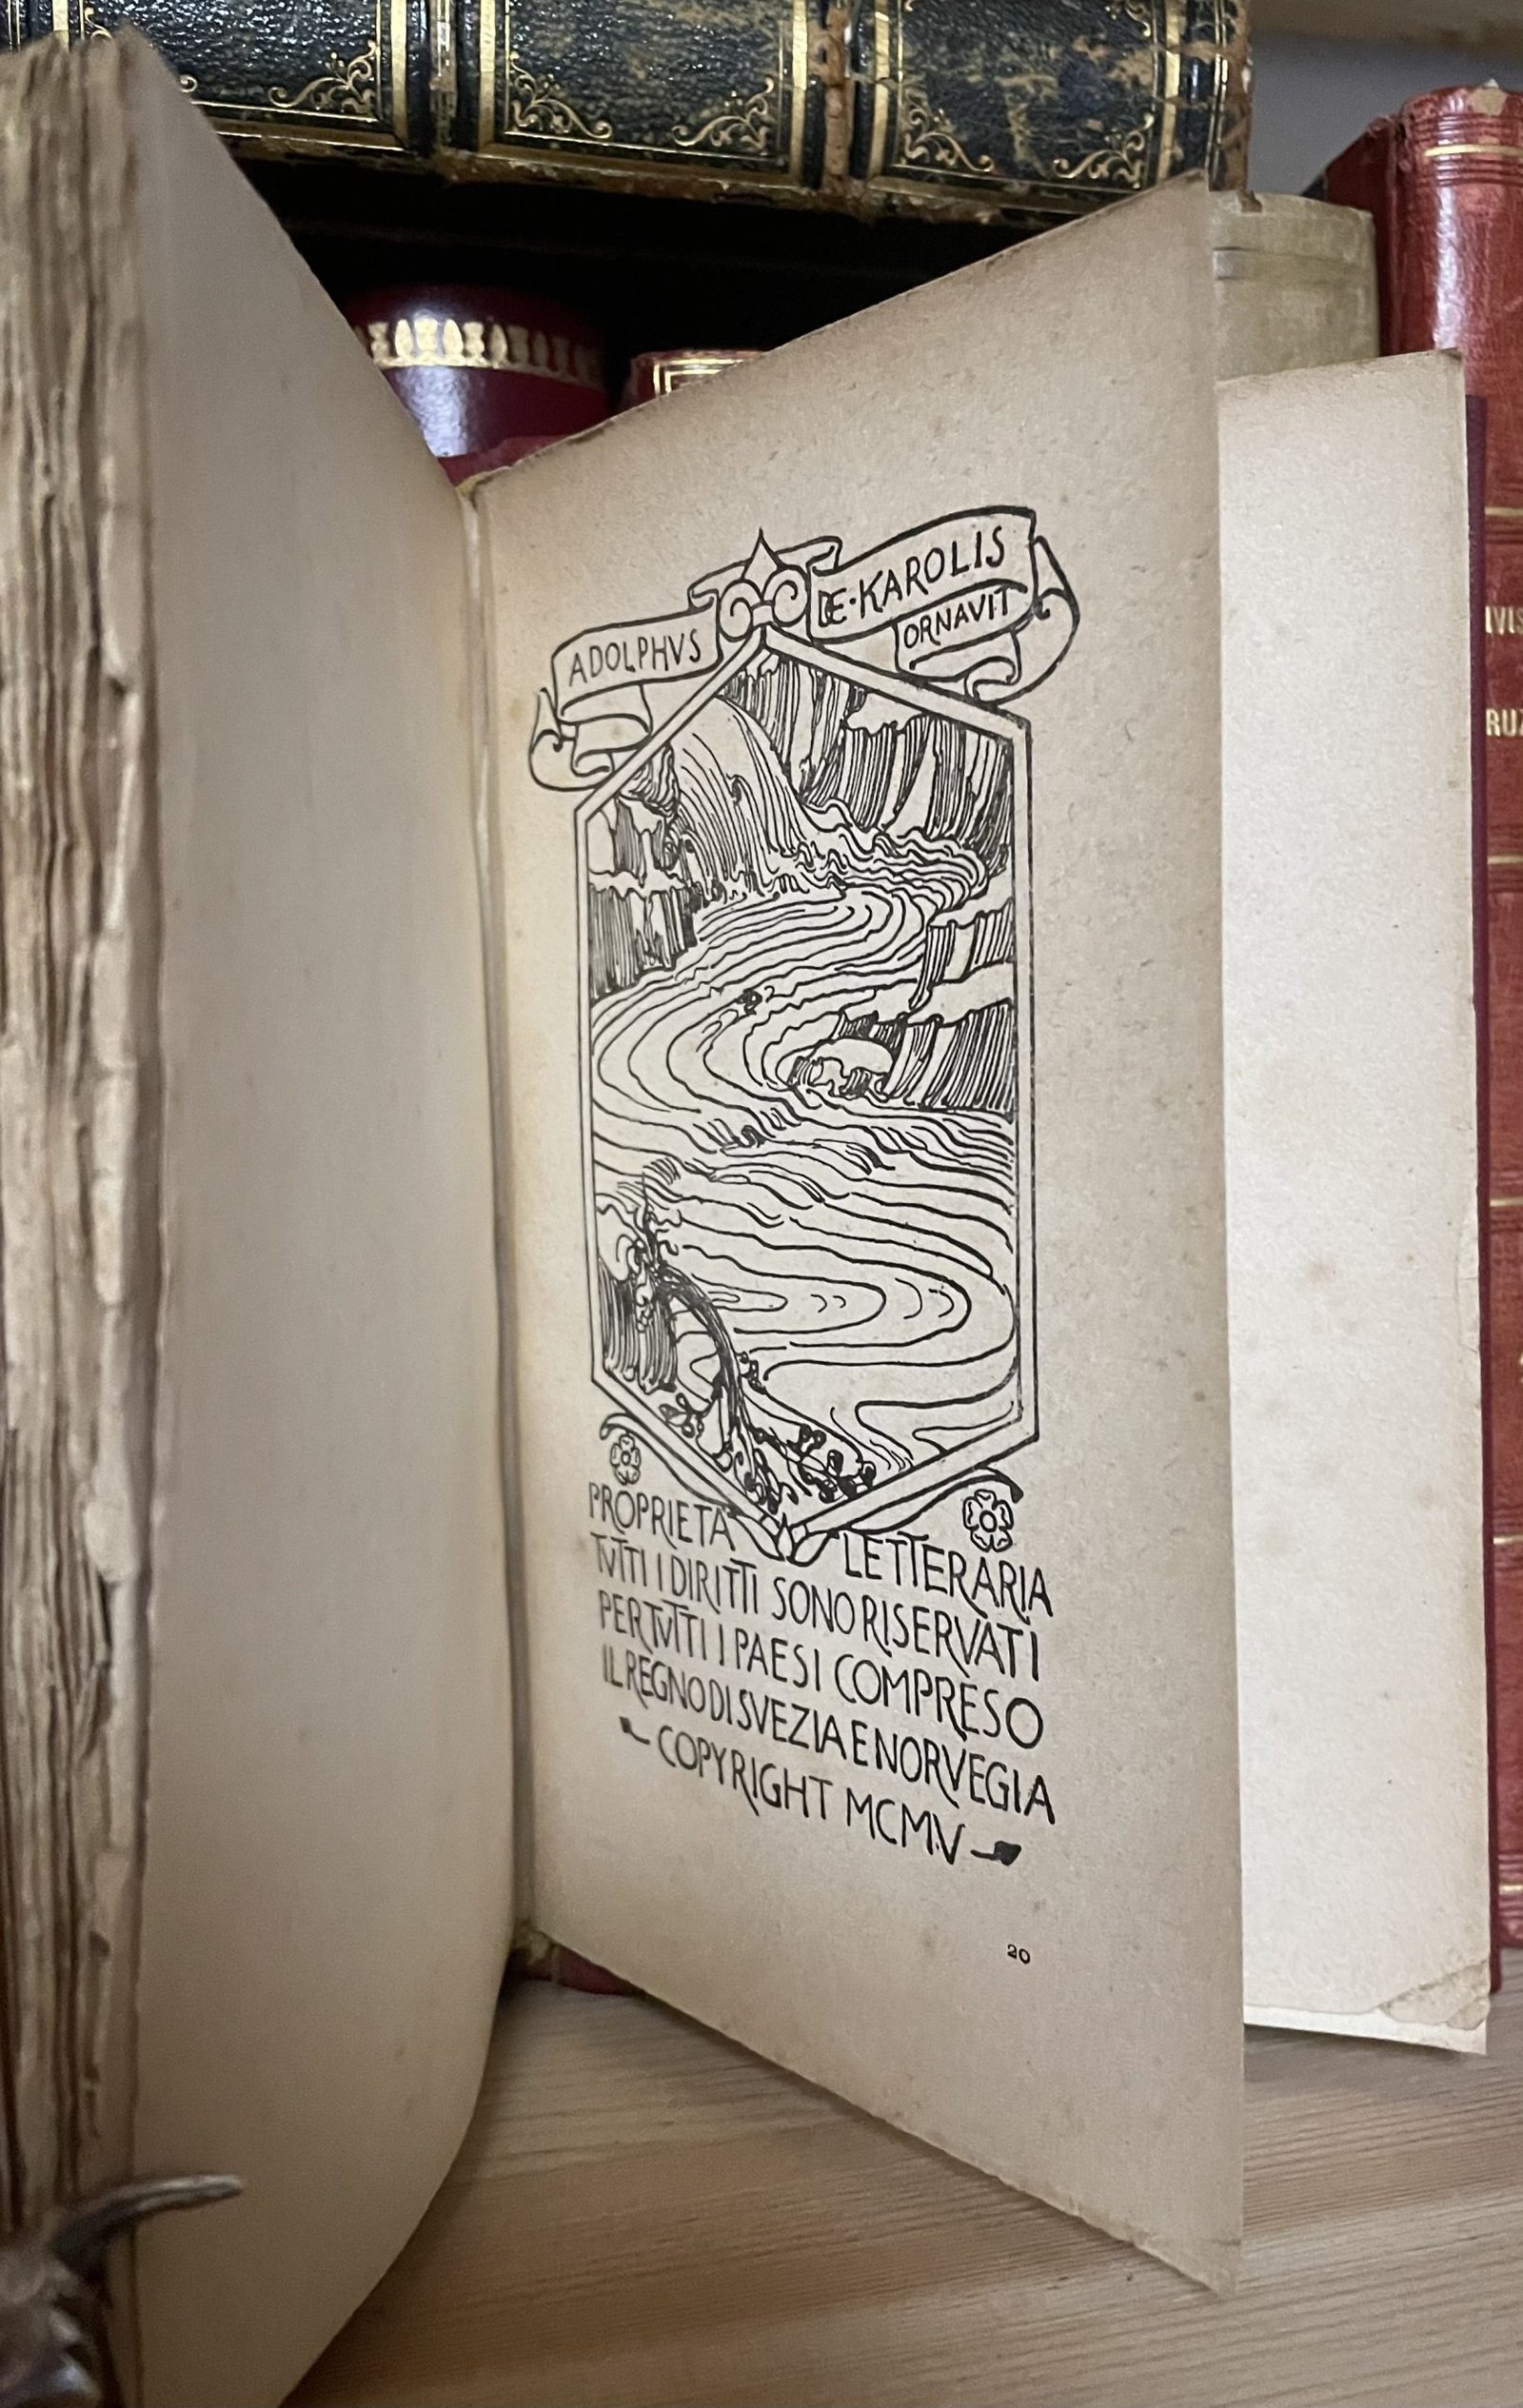 ADOLPHVS DE·KAROLIS
ORNAVIT
PROPRIETA' LETTERARIA
TVTTI I DIRITTI SONO RISERVATI
PER TVTTI I PAESI COMPRESO
IL REGNO DI SVEZIA E NORVEGIA
COPYRIGHT MCMV
20